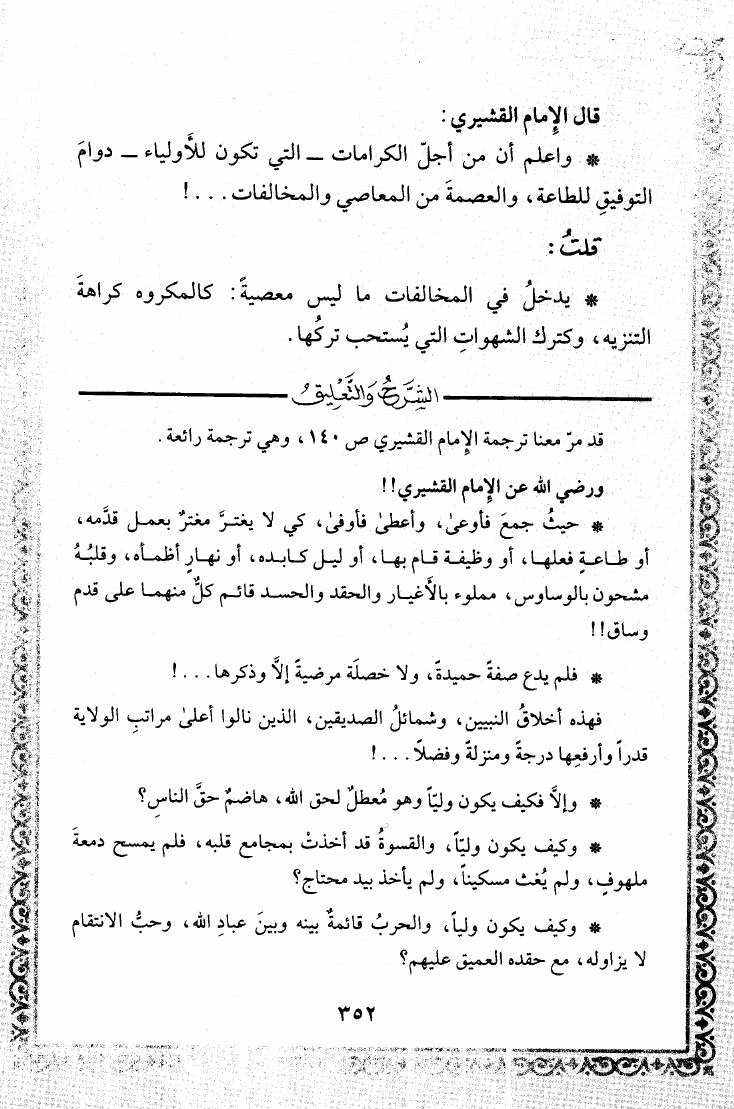 قال الإمام القشيري:
* واعلم أن من أجلّ الكرامات ــ التي تكون للأولياء ــ دوامَ
التوفيقِ للطاعة، والعصمةَ من المعاصي والمخالفات...!
قلتُ:
* يدخلُ في المخالفات ما ليس معصيةً: كالمكروه كراهةَ
التنزيه، وكترك الشهواتِ التي يُستحب تركُها.
الشَّرحُ وَالتَّعليق
قد مرّ معنا ترجمة الإمام القشيري ص ١٤٠، وهي ترجمة رائعة.
ورضي الله عن الإمام القشيري!!
* حيثُ جمعَ فأوعىٰ، وأعطىٰ فأوفىٰ، كي لا يغترَّ مغترٌ بعمل قدَّمه،
أو طاعةٍ فعلها، أو وظيفة قام بها، أو ليل كابده، أو نهارٍ أظمأه، وقلبُهُ
مشحون بالوساوس، مملوء بالأغيار والحقد والحسد قائم كلٌ منهما على قدم
وساق!!
* فلم يدع صفةً حميدةً، ولا خصلَة مرضيةً إلاَّ وذكرها...!
فهذه أخلاقُ النبيين، وشمائلُ الصديقين، الذين نالوا أعلىٰ مراتبِ الولاية
قدراً وأرفعِها درجةً ومنزلةً وفضلاً...!
* وإلاَّ فكيف يكون وليّاً وهو مُعطلٌ لحق الله، هاضمٌ حقَّ الناسِ؟
* وكيف يكون وليّاً، والقسوةُ قد أخذتْ بمجامع قلبه، فلم يمسح دمعةَ
ملهوفٍ، ولم يُغث مسكيناً، ولم يأخذ بيد محتاج؟
* وكيف يكون ولياً، والحربُ قائمةٌ بينه وبينَ عبادِ الله، وحبُّ الانتقام
لا يزاوله، مع حقده العميق عليهم؟
٣٥٢